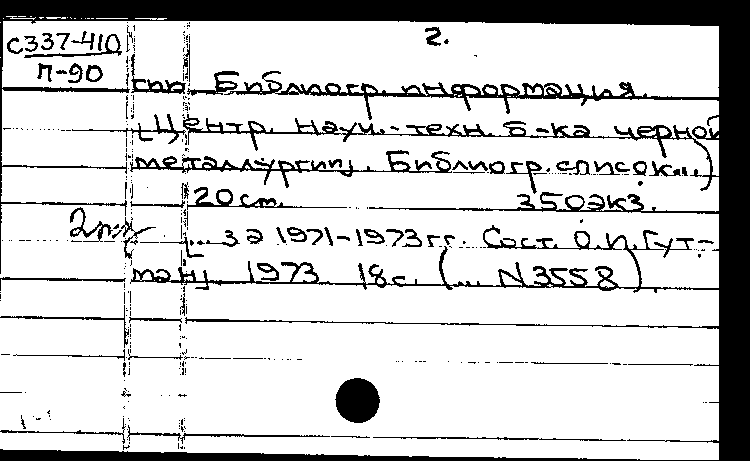 2.
С337-410
П-90
гии Библиогр. информация.
[Центр. науч.-техн. б-ка черной
металлургии]. Библиогр. список...)
20 см. 350 экз.
[... за 1971-1973 гг. Сост. О.И. Гут-
ман] 1973 18 с. (... N 3558).